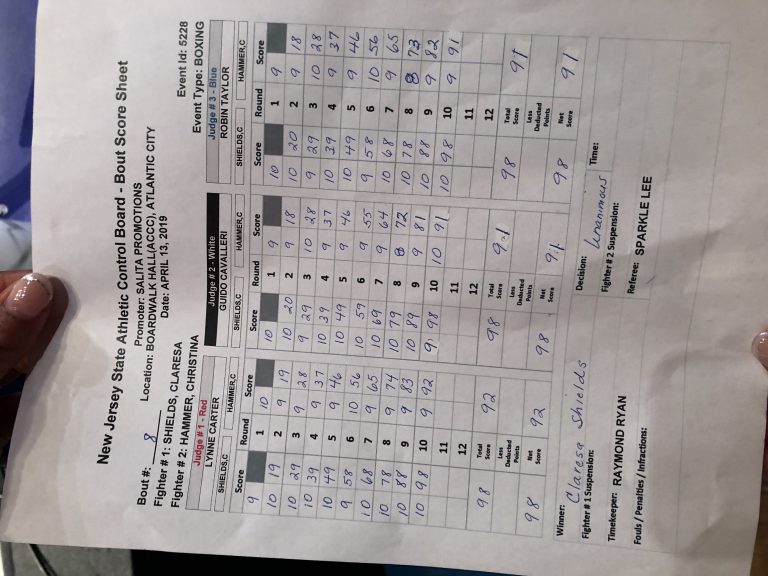 New Jersey State Athletic Control Board - Bout Score Sheet
Promoter: SALITA PROMOTIONS
Bout #: 8 Location: BOARDWALK HALL(ACCC), ATLANTIC CITY Event Id: 5228
Fighter # 1: SHIELDS, CLARESA Date: APRIL 13, 2019 Event Type: BOXING
Fighter # 2: HAMMER, CHRISTINA
Judge # 1 - Red Judge # 2 - White Judge # 3 - Blue
LYNNE CARTER GUIDO CAVALLERI ROBIN TAYLOR
SHIELDS,C HAMMER,C SHIELDS,C HAMMER,C SHIELDS,C HAMMER,C
Score Round Score Score Round Score Score Round Score
9 1 10 10 1 9 10 1 9
10 19 2 9 19 10 20 2 9 18 10 20 2 9 18
10 29 3 9 28 9 29 3 10 28 9 29 3 10 28
10 39 4 9 37 10 39 4 9 37 10 39 4 9 37
10 49 5 9 46 10 49 5 9 46 10 49 5 9 46
9 58 6 10 56 10 59 6 9 55 9 58 6 10 56
10 68 7 9 65 10 69 7 9 64 10 68 7 9 65
10 78 8 9 74 10 79 8 8 72 10 78 8 8 73
10 88 9 9 83 10 89 9 9 81 10 88 9 9 82
10 98 10 9 92 9 98 10 10 91 10 98 10 9 91
11 11 11
12 12 12
98 Total Score 92 98 Total Score 91 98 Total Score 91
Less Deducted Points Less Deducted Points Less Deducted Points
98 Net Score 92 98 Net Score 91 98 Net Score 91
Winner: Claressa Shields Decision: Unanimous Time:
Fighter # 1 Suspension: Fighter # 2 Suspension:
Timekeeper: RAYMOND RYAN Referee: SPARKLE LEE
Fouls / Penalties / Infractions: